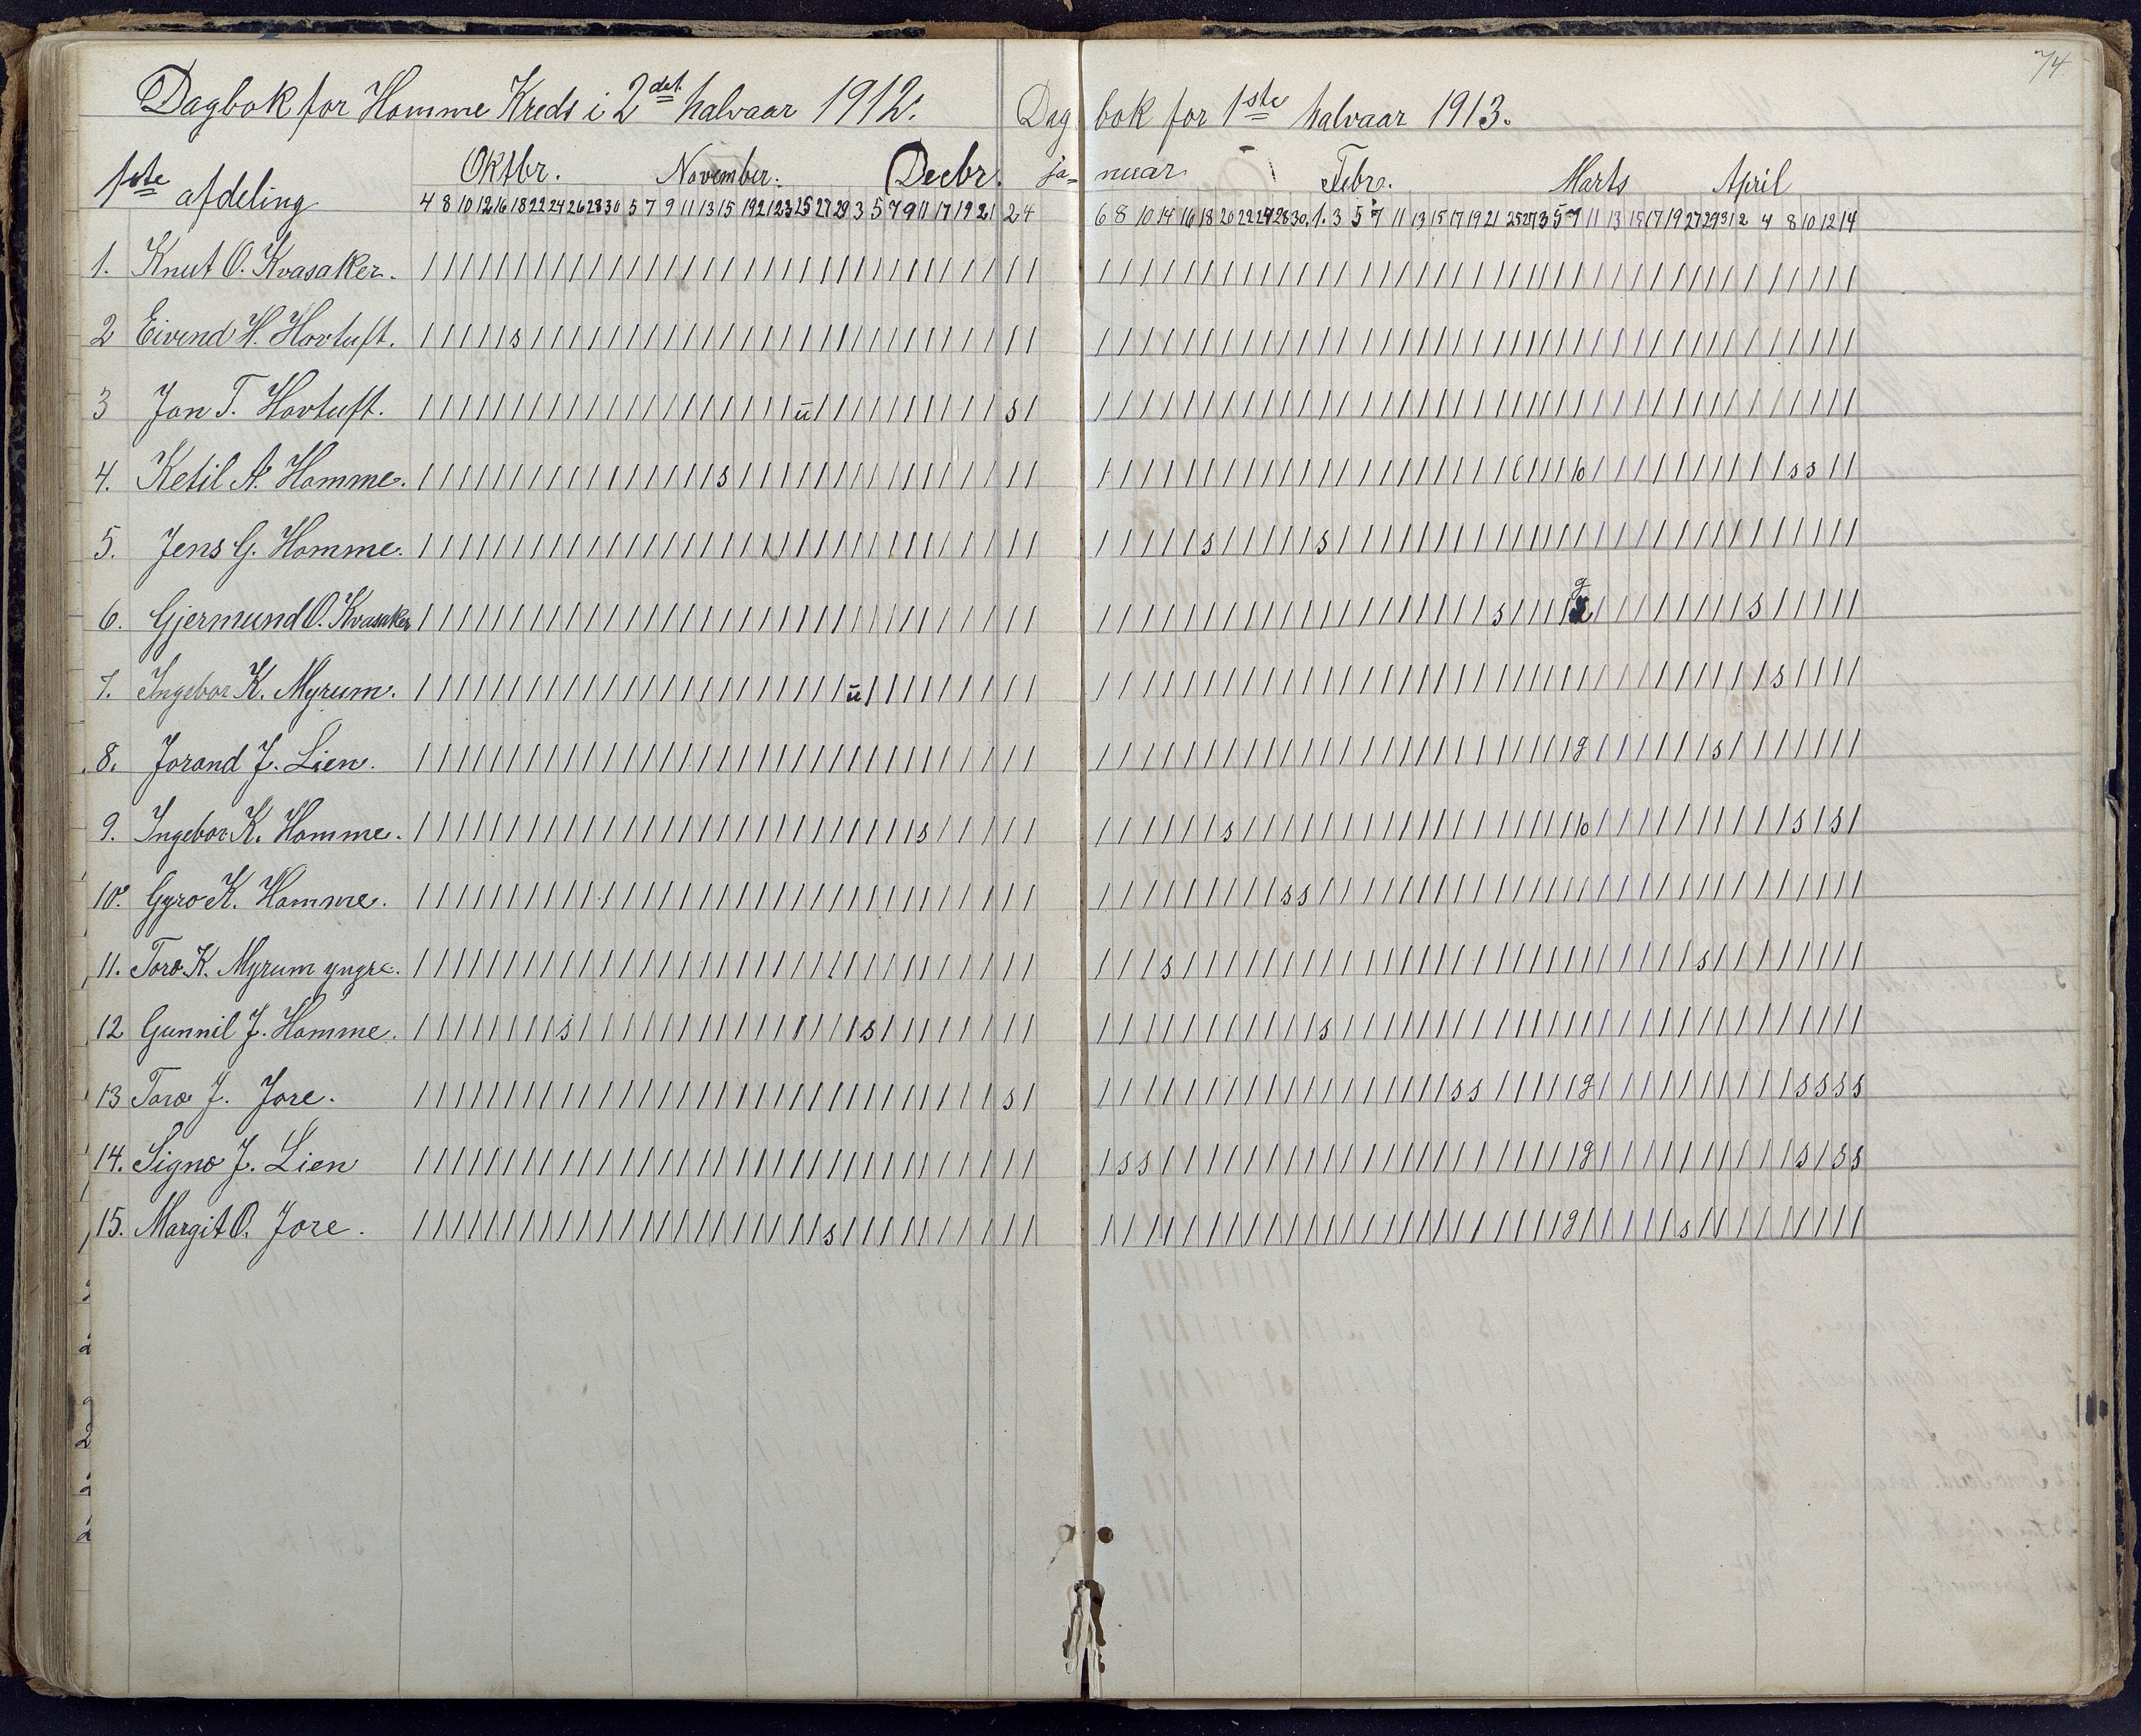 74
Dagbok for Homme Kreds i 2det halvaar 1912. Dag bok for 1ste halvaar 1913.
1ste afdeling Oktbr. November. Decbr. ja= nuar Febr. Marts April
4 8 10 12 16 18 22 24 26 28 30 5 7 9 11 13 15 19 21 23 25 27 29 3 5 7 9 11 17 19 21 2 4 6 8 10 14 16 18 20 22 24 28 30. 1. 3 5 7 11 13 15 17 19 21 25 27 3 5 7 9 11 13 15 17 19 27 29 31 2 4 8 10 12 14
1. Knut O. Kvasaker.
2 Eivend H. Hovtuft. s
3 Jon T. Hovtuft. ū s
4. Ketil A. Homme. s s s
5. Jens G. Homme. s s
6. Gjermund O. Kvasaker s g s
7. Ingebor K. Myrum. ū s
8. Jorand J. Lien. g s
9. Ingebor K. Homme. s s s s
10. Gyro K. Homme. s s
11. Toro K. Myrum yngre. s s
12 Gunnil J. Homme. s s s
13 Toro J. Jore. s s s g s s s s
14. Signo J. Lien s s g s s s
15. Margit O. Jore. s g s